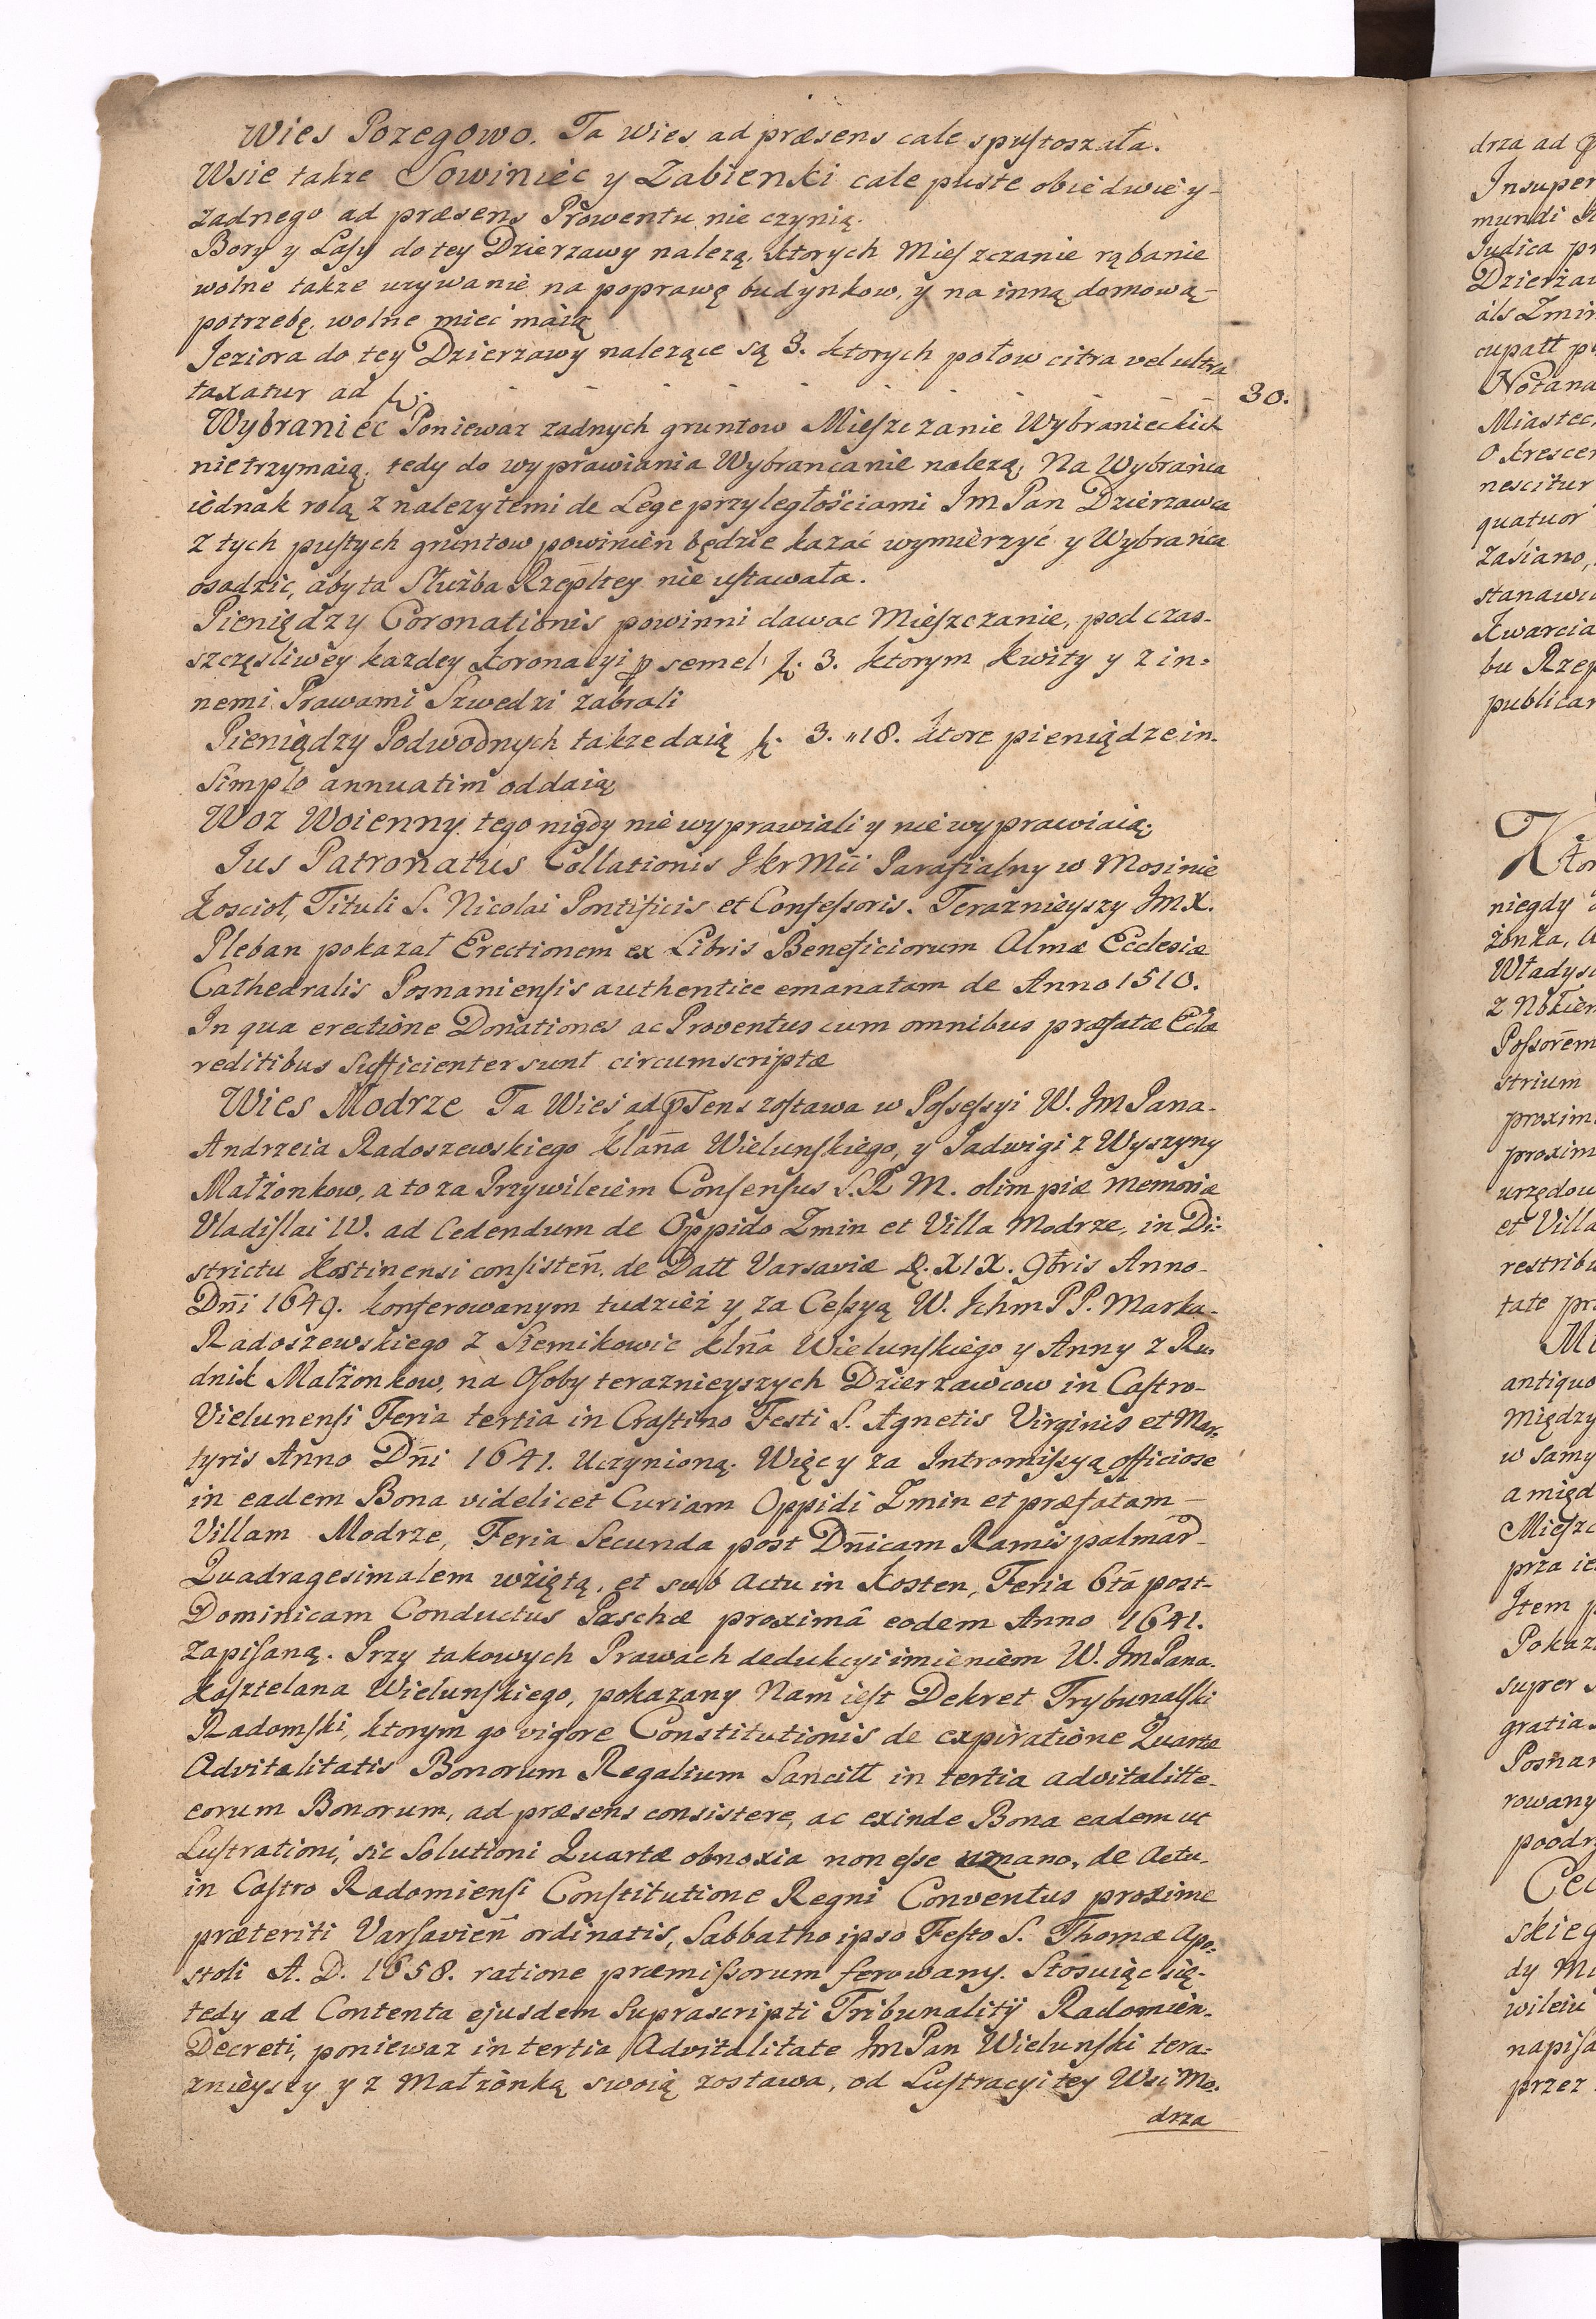 Wies Pozegowo. Ta wies ad præsens cale spustoszała.
Wsie takze Sowiniec y Zabienski cale puste obiedwie y
zadnego ad præsens Prowentu nie czynią.
Bory y Lasy do tey Dzierzawy nalezą, ktorych Mieszczanie rąbanie
wolne takze uzywanie na poprawę budynkow, y na inną domową
potrzebę wolne mieć maią
Jeziora do tey Dzierzawy nalezące są 3. ktorych połow citra vel ultra
taxatur ad fl. - - - - - - - 30.
Wybraniec Poniewaz zadnych gruntow Mieszczanie Wybranieckich
nietrzymaią, tedy do wyprawiania Wybranca nie nalezą, Na Wybrańca
iednak rolą z nalezytemi de Lege przyległościami Im Pan Dzierzawca
z tych pustych gruntow powinien będzie kazać wymierzyć y Wybrańca
osadzic, aby ta Służba Rzepltey nie ustawała.
Pieniędzy Coronationis powinni dawac Mieszczanie, pod czas
szczęsliwey kazdey Koronacyi p semel fl. 3. ktorym kwity y z in:
nemi Prawami Szwedzi zabrali
Pieniędzy Podwodnych takze daią fl. 3. "18. ktore pieniądze in
Simplo annuatim oddaią
Woz Woienny tego nigdy nie wyprawiali y nie wyprawiaią,
Jus Patronatus Collationis JkrMci Parafialny w Mosinie
Koscioł, Tituli S. Nicolai Pontificis et Confessoris. Teraznieyszy JmX.
Pleban pokazał Erectionem ex Libris Beneficiorum Almæ Ecclesiæ
Cathedralis Posnaniensis authentice emanatam de Anno 1510.
In qua erectione Donationes ac Proventus cum omnibus præfatæ Eclæ
reditibus Sufficienter sunt circumscriptæ
Wies Modrze Ta Wies ad pſens zostawa w Possessyi W. Jm Pana
Andrzeia Radoszewskiego klanna Wielunskiego, y Jadwigi z Wyszyny
Małżonkow, a to za Przywileiem Consensus S. R. M. olim piæ memoriæ
Vladislai IV. ad Cedendum de Oppido Zmin et Villa Modrze, in Di:
strictu Kostinensi consisteñ. de Datt Varsaviæ d. XIX. 9bris Anno
Dñi 1649. konferowanym tudzież y za Cessyą W. Ichm PP. Marka
Radoszewskiego z Siemikowic klña Wielunskiego y Anny z Ru:
dnik Małżonkow, na Osoby teraznieyszych Dzierzawcow in Castro
Vielunensi Feria tertia in Crastino Festi S. Agnetis Virginis et Mar:
tyris Anno Dñi 1641. Uczynioną. Więc y za Intromissyą officiose
in eadem Bona videlicet Curiam Oppidi Zmin et præfatam
Villam Modrze, Feria Secunda post Dñicam Ramis palmar
Quadragesimalem wziętą, et sub Actu in Kosten, Feria 6tâ post
Dominicam Conductus Paschæ proximâ eodem Anno 1641.
Zapisaną. Przy takowych Prawach dedukcyi imieniem W. Jm Pana
Kasztelana Wielunskiego, pokazany Nam iest Dekret Trybunalski
Radomski, ktorym go vigore Constitutionis de expiratione Quartæ
Advitalitatis Bonorum Regalium Sancitt in tertia advitalitte
eorum Bonorum, ad præsens consistere, ac exinde Bona eadem ut
Lustrationi, sic Solutioni Quartæ obnoxia non esse uznano, de Actu
in Castro Radomiensi Constitutione Regni Conventus proxime
præteriti Varsavieñ ordinatis, Sabbatho ipso Festo S. Thomæ Apo:
stoli A. D. 1658. ratione præmissorum ferowany. Stosuiąc się
tedy ad Contenta ejusdem Suprascripti Tribunalitÿ Radomien
Decreti, poniewaz in tertia Advitalitate Jm Pan Wielunski tera:
znieyszy y z Małżonką swoią zostawa, od Lustracyi tey Wsi Mo:
drza
drza ad
Insuper
mundi
Judica
Dzierża
als Zmin
cupatt
Notana
Miastec
O kresce
nescitur
quatuor
zasiano,
stanawi
Kwarcia
bu Rzep
publican
Ktor
niegdy
żonka,
Władys
z Nokien
Possorem
strium
proxim
proxim
urzędow
et Villa
restribu
tate
antiquo
między
w samy
a międ
Mieszc
prza
Item
Pokaz
super
gratia
Posnan
rowany
poodn
skieg
dy
wileiu
napisa
przez